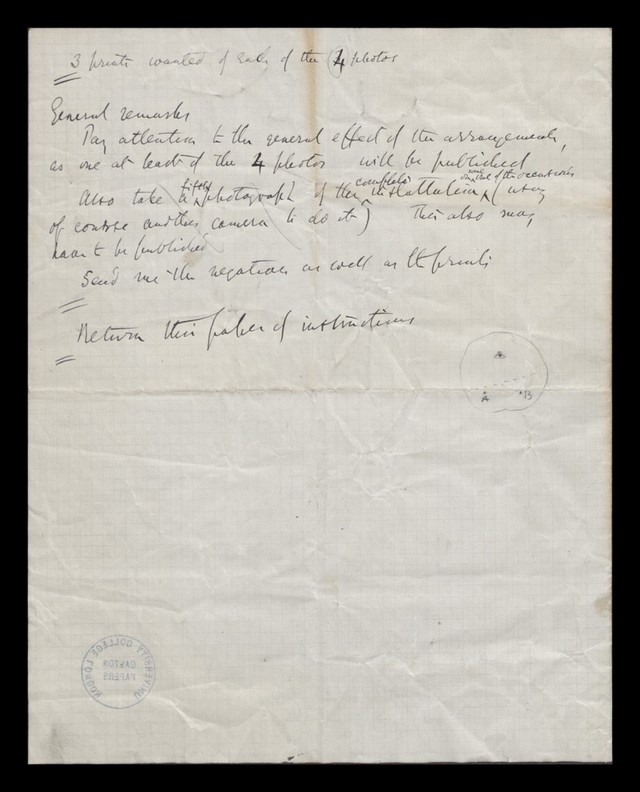 3 prints wanted of each of the 4 photos
General remarks
Pay attention to the general effect of the arrangements,
as one at least of the 4 photos will be published
Also take a fifth photograph of the complete installation, on one of the occasions (using
of course another camera to do it) This also may
have to be published
Send me the negatives as well as the prints
Return this paper of instructions
A
A B
UNIVERSITY COLLEGE LONDON
GALTON
PAPERS